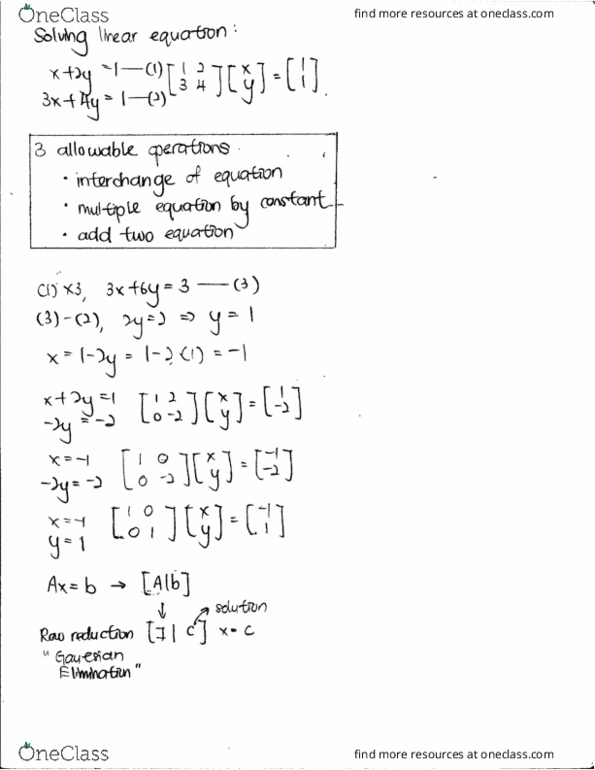 OneClass
find more resources at oneclass.com
Solving linear equation:
x+2y = 1 — (1) [1 2 3 4] [x y] = [1 1].
3x+4y = 1 — (2)
3 allowable operations.
• interchange of equation
• multiple equation by constant
• add two equation
(1) ×3, 3x+6y = 3 — (3)
(3)-(2), 2y=2 ⇒ y = 1
x = 1-2y = 1-2(1) = -1
x+2y=1 [1 2 0 -2] [x y] = [1 -2]
-2y = -2
x=-1 [1 0 0 -2] [x y] = [-1 -2]
-2y=-2
x=-1 [1 0 0 1] [x y] = [-1 1]
y=1
Ax=b → [A|b]
↓ ↗ solution
Row reduction [I | c] x=c
"Gaussian
Elimination"
OneClass
find more resources at oneclass.com